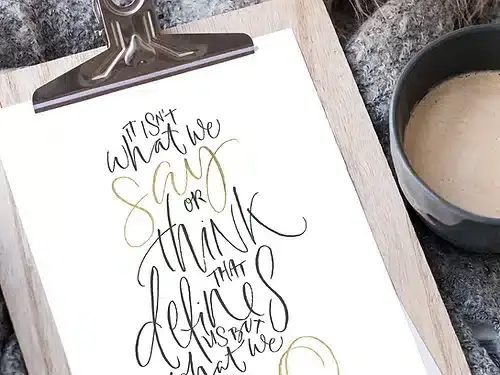 IT ISN'T
what we
say
OR
thiNK
THAT
defines
US BUT
what we